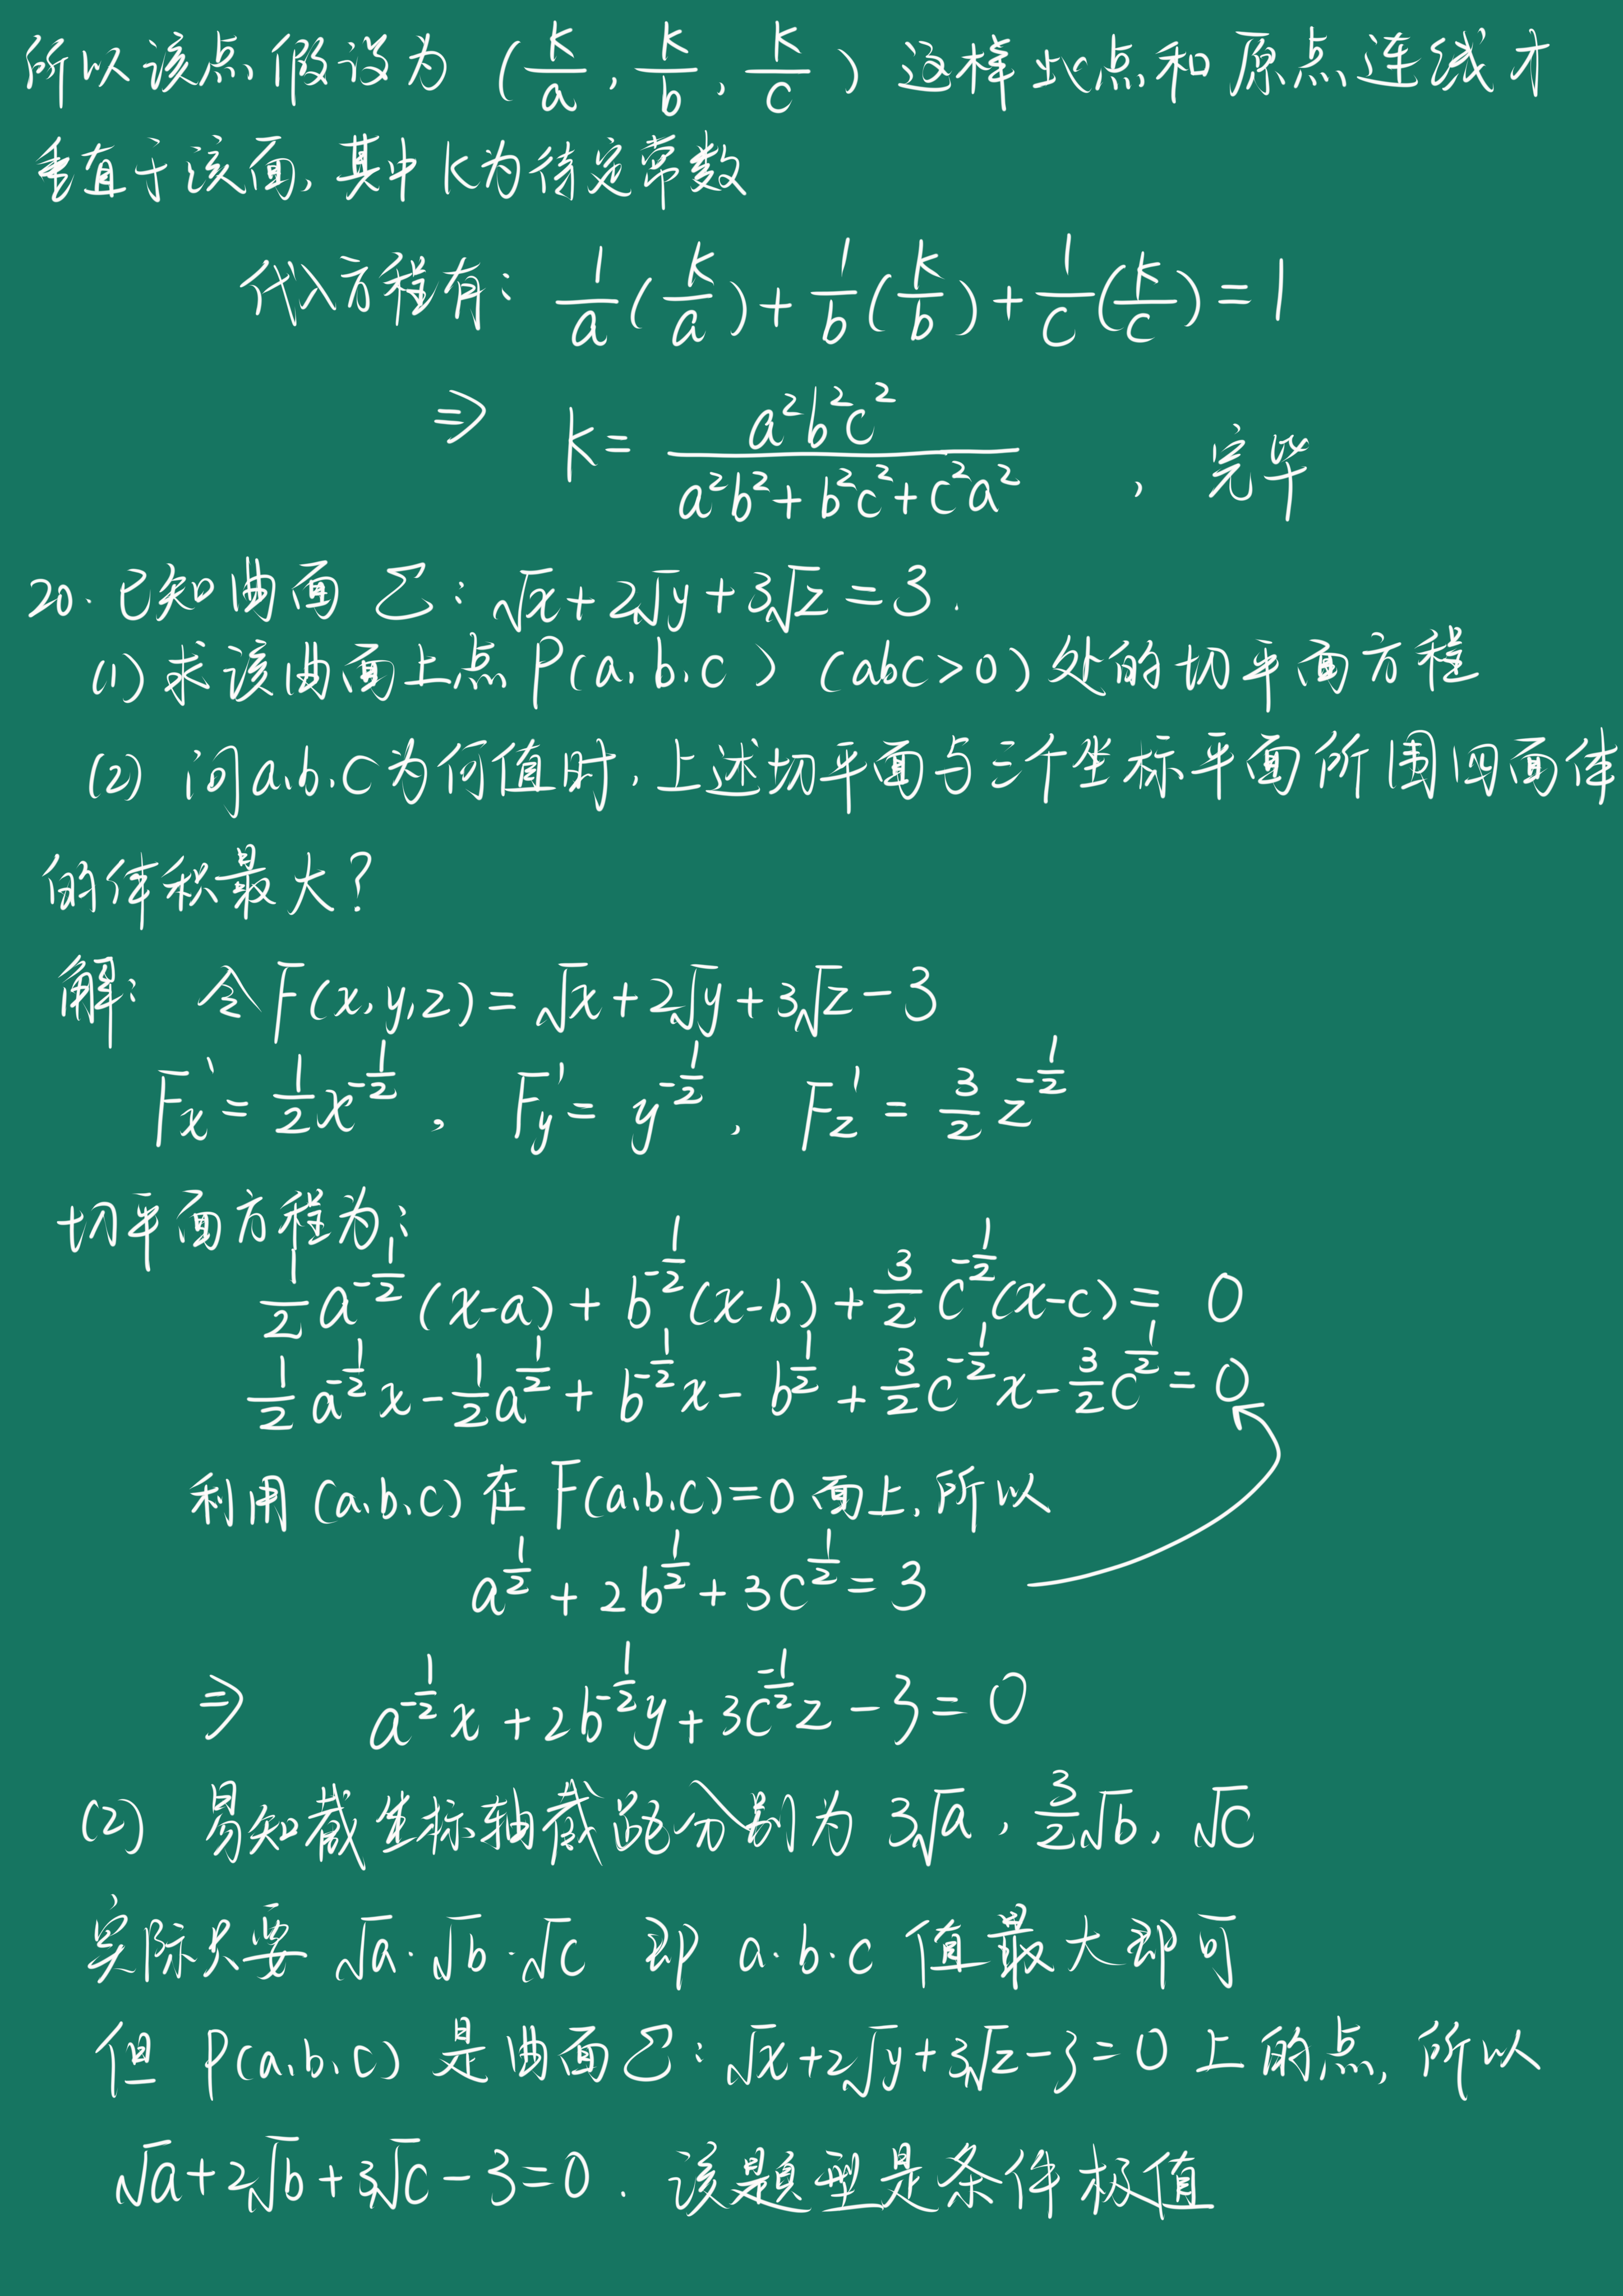 所以该点假设为 (k/a, k/b, k/c) 这样此点和原点连线才
垂直于该面, 其中 k为待定常数
代入方程有: 1/a(k/a)+1/b(k/b)+1/c(k/c)=1
⇒ k= a²b²c²/(a²b²+b²c²+c²a²) , 完毕
20. 已知曲面 Σ: √x+2√y+3√z=3.
(1) 求该曲面上点 P(a,b,c) (abc>0) 处的切平面方程
(2) 问a,b,c为何值时, 上述切平面与三个坐标平面所围四面体
的体积最大?
解: 令 F(x,y,z)=√x+2√y+3√z-3
Fx'=1/2 x^(-1/2), Fy'=y^(-1/2), Fz'=3/2 z^(-1/2)
切平面方程为:
1/2 a^(-1/2)(x-a)+b^(-1/2)(x-b)+3/2 c^(-1/2)(x-c)=0
1/2 a^(-1/2)x-1/2 a^(1/2)+b^(-1/2)x-b^(1/2)+3/2 c^(-1/2)x-3/2 c^(1/2)=0
利用 (a,b,c) 在 F(a,b,c)=0 面上, 所以
a^(1/2)+2b^(1/2)+3c^(1/2)=3
⇒ a^(-1/2)x+2b^(-1/2)y+3c^(-1/2)z-3=0
(2) 易知截坐标轴截距分别为 3√a, 3/2√b, √c
实际只要 √a·√b·√c 即 a·b·c 值最大即可
但 P(a,b,c) 是曲面Σ: √x+2√y+3√z-3=0 上的点, 所以
√a+2√b+3√c-3=0. 该题型是条件极值